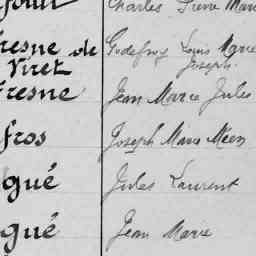 Charles Pierre Marie
fresne de Godefroy Louis Marie
Viret Joseph
fresne Jean Marie Jules
fros Joseph Marie Méen
gué Jules Laurent
gué Jean Marie